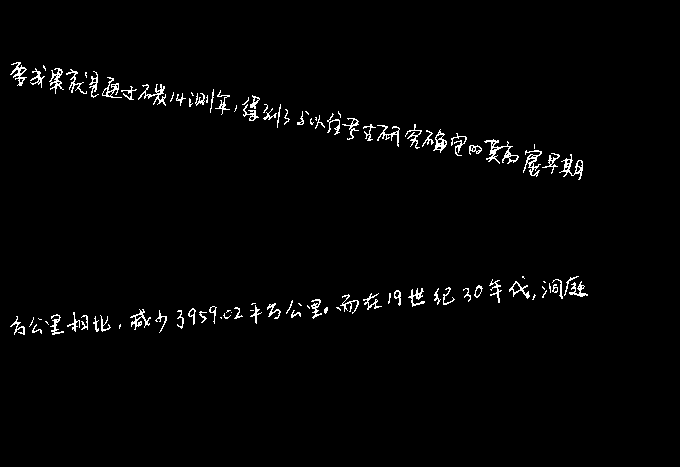 要成果就是通过碳14测年,得到了与以往考古研究确定的莫高窟早期
方公里相比,减少了959.02平方公里。而在19世纪30年代,洞庭